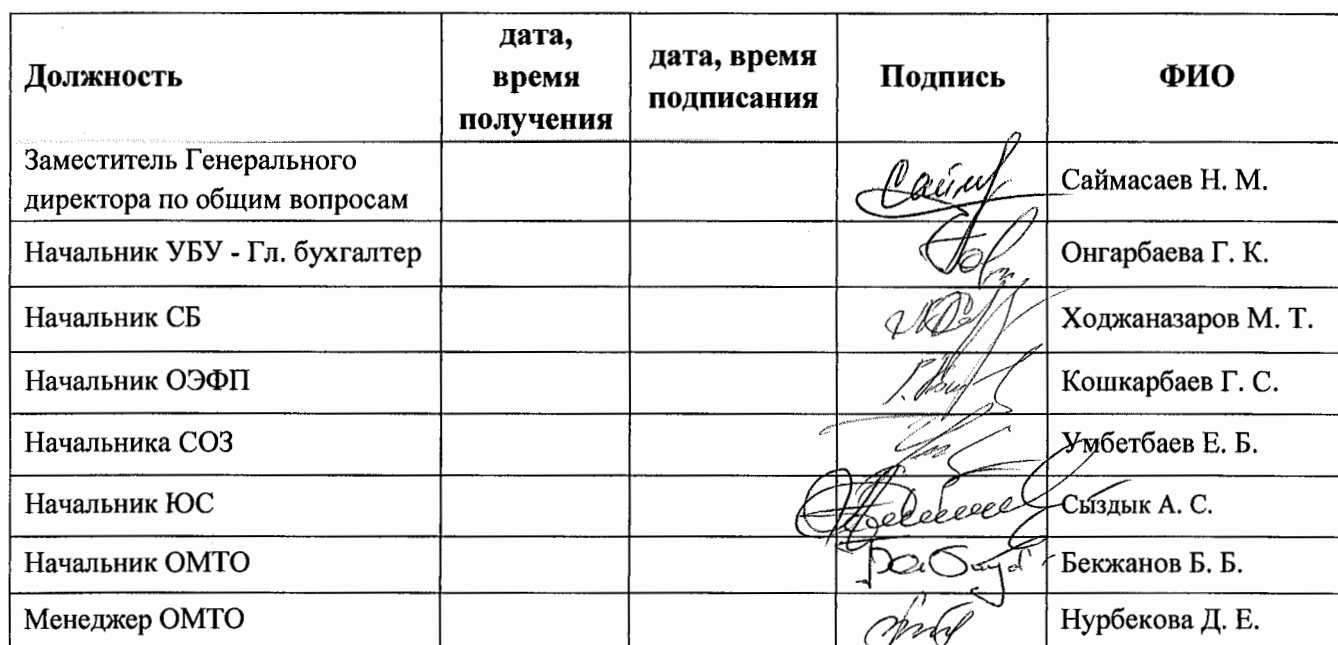 Должность
дата,
время
получения
дата, время
подписания
Подпись
ФИО
Заместитель Генерального
директора по общим вопросам
Саймасаев Н. М.
Начальник УБУ - Гл. бухгалтер
Онгарбаева Г. К.
Начальник СБ
Ходжаназаров М. Т.
Начальник ОЭФП
Кошкарбаев Г. С.
Начальника СОЗ
Умбетбаев Е. Б.
Начальник ЮС
Сыздык А. С.
Начальник ОМТО
Бекжанов Б. Б.
Менеджер ОМТО
Нурбекова Д. Е.